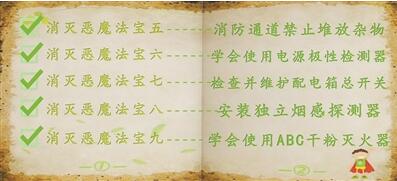 消灭恶魔法宝五------消防通道禁止堆放杂物
消灭恶魔法宝六------学会使用电源极性检测器
消灭恶魔法宝七------检查并维护配电箱总开关
消灭恶魔法宝八------安装独立烟感探测器
消灭恶魔法宝九------学会使用ABC干粉灭火器
①
②